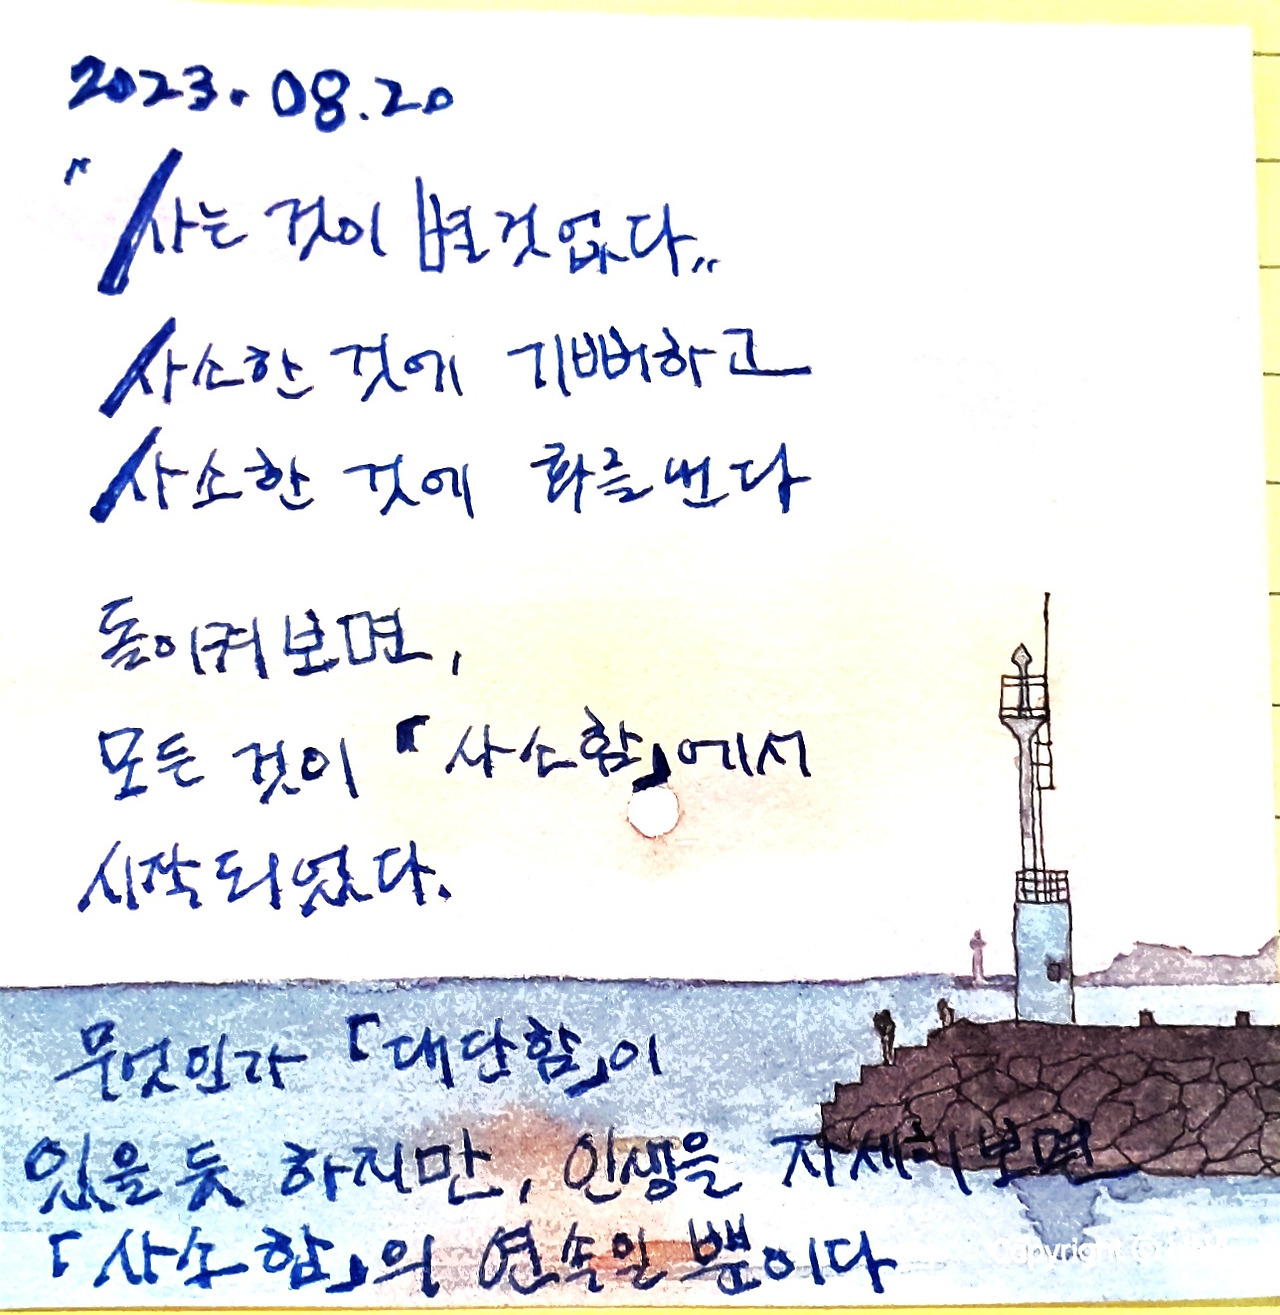 2023. 08. 20
"사는 것이 별것없다"
사소한 것에 기뻐하고
사소한 것에 화를 낸다
돌이켜보면,
모든 것이 「사소함」에서
시작되었다.
무엇인가 「대단함」이
있을 듯 하지만, 인생을 자세히 보면
「사소함」의 연속일 뿐이다
Copyright ©